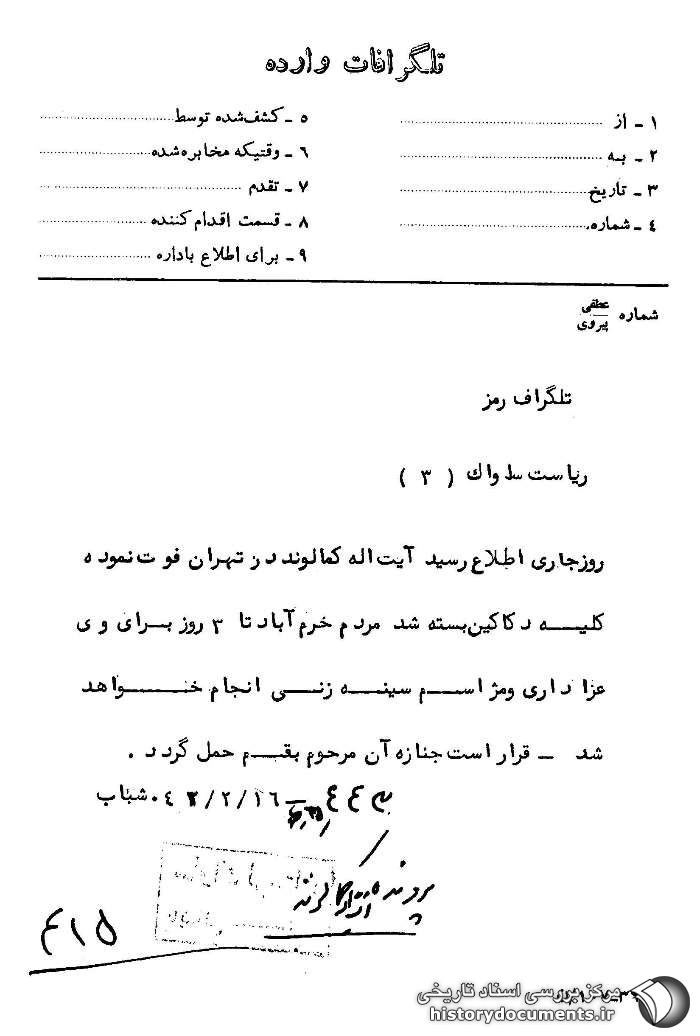 تلگرافات وارده
۱ - از
۲ - به
۳ - تاریخ
۴ - شماره
۵ - کشف‌شده توسط
۶ - وقتیکه مخابره‌شده
۷ - تقدم
۸ - قسمت اقدام‌کننده
۹ - برای اطلاع باداره
شماره عطفی
پیروی
تلگراف رمز
ریاست ساواك ( ۳ )
روزجاری اطلاع رسید آیت‌اله کمالوند در تهران فوت نموده
کلیه دکاکین بسته شد مردم خرم‌آباد تا ۳ روز برای وی
عزاداری ومژاسم سینه زنی انجام خواهد
شد - قرار است جنازه آن مرحوم بقم حمل گردد .
شباب
پرونده
۴۱۵
مرکز بررسی اسناد تاریخی
historydocuments.ir